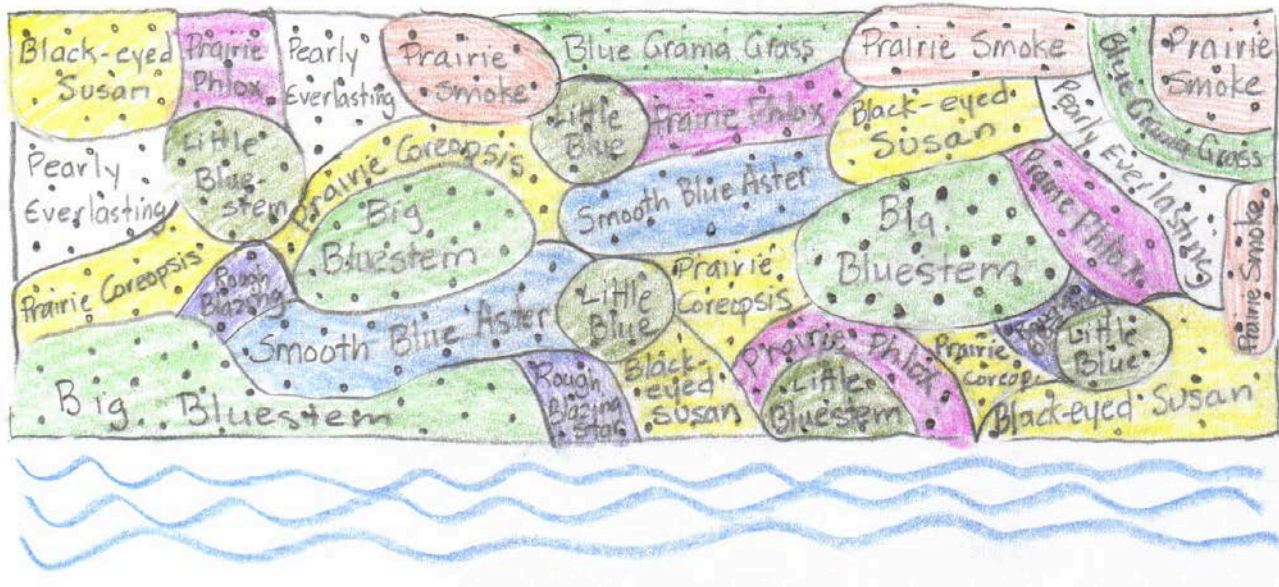 Black-eyed
Susan
Prairie
Phlox
Pearly
Everlasting
Prairie
Smoke
Blue Grama Grass
Prairie Smoke
Blue Grama Grass
Prairie
Smoke
Pearly
Everlasting
Little
Blue-
stem
Prairie Coreopsis
Little
Blue
Prairie Phlox
Black-eyed
Susan
Pearly Everlasting
Smooth Blue Aster
Big
Bluestem
Big
Bluestem
Prairie
Phlox
Prairie Smoke
Prairie Coreopsis
Rough
Blazing
Smooth Blue Aster
Little
Blue
Prairie
Coreopsis
Little
Blue
Big Bluestem
Rough
Blazing
Star
Black-
eyed
Susan
Prairie Phlox
Little
Bluestem
Prairie
Coreop
Black-eyed Susan